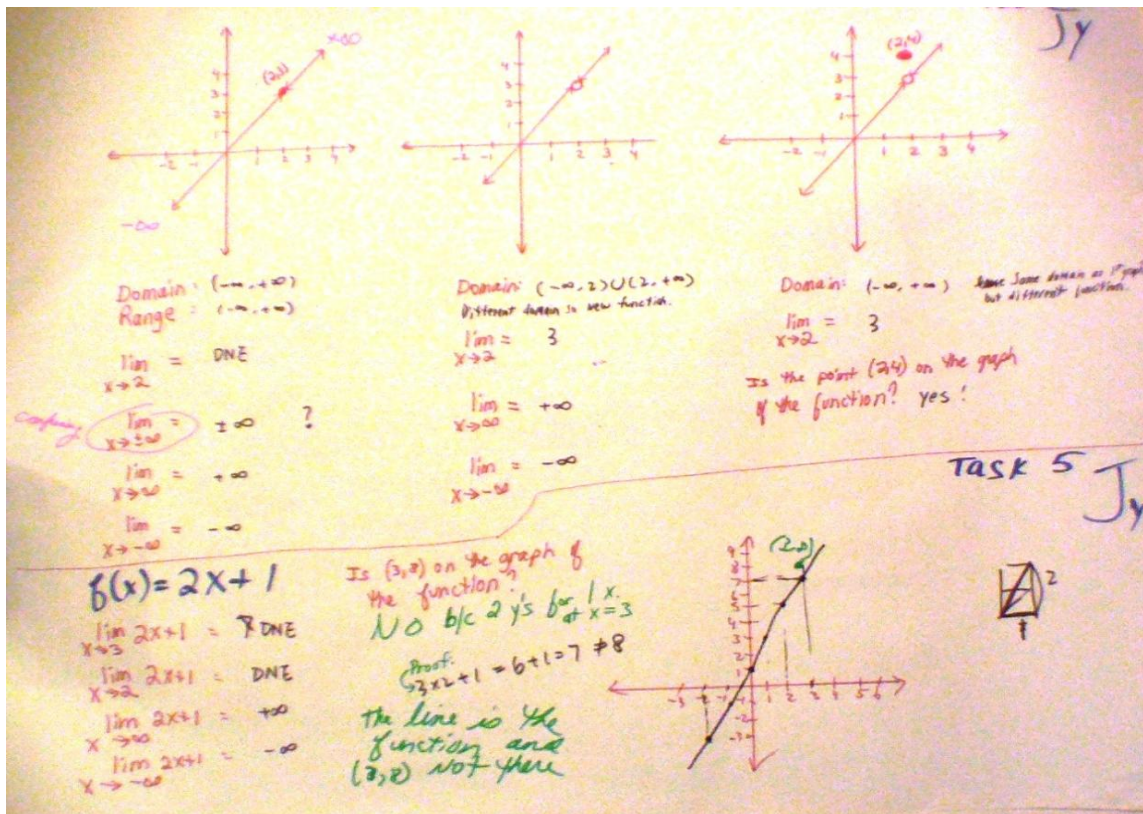 Jy
x→∞
(2,3)
4
3
2
1
-2 -1 1 2 3 4
-∞
4
3
2
1
-2 -1 1 2 3 4
(2,4)
4
3
2
1
-2 -1 1 2 3 4
Domain: (-∞, +∞)
Range: (-∞, +∞)
lim = DNE
x→2
confusing
lim = ±∞ ?
x→±∞
lim = +∞
x→∞
lim = -∞
x→-∞
Domain: (-∞, 2)∪(2, +∞)
Different domain so new function.
lim = 3
x→2
lim = +∞
x→∞
lim = -∞
x→-∞
Domain: (-∞, +∞)
Same domain as 1st graph
but different function.
lim = 3
x→2
Is the point (2,4) on the graph
of the function? yes!
Task 5 Jy
f(x)=2x+1
lim 2x+1 = DNE
x→3
lim 2x+1 = DNE
x→2
lim 2x+1 = +∞
x→∞
lim 2x+1 = -∞
x→-∞
Is (3,8) on the graph of
the function?
No b/c 2 y's for 1 x.
at x=3
Proof:
3×2+1=6+1=7≠8
the line is the
function and
(3,8) not there
9
8
7
6
5
4
3
2
-3 -2 -1 1 2 3 4 5 6
-1
-2
-3
2